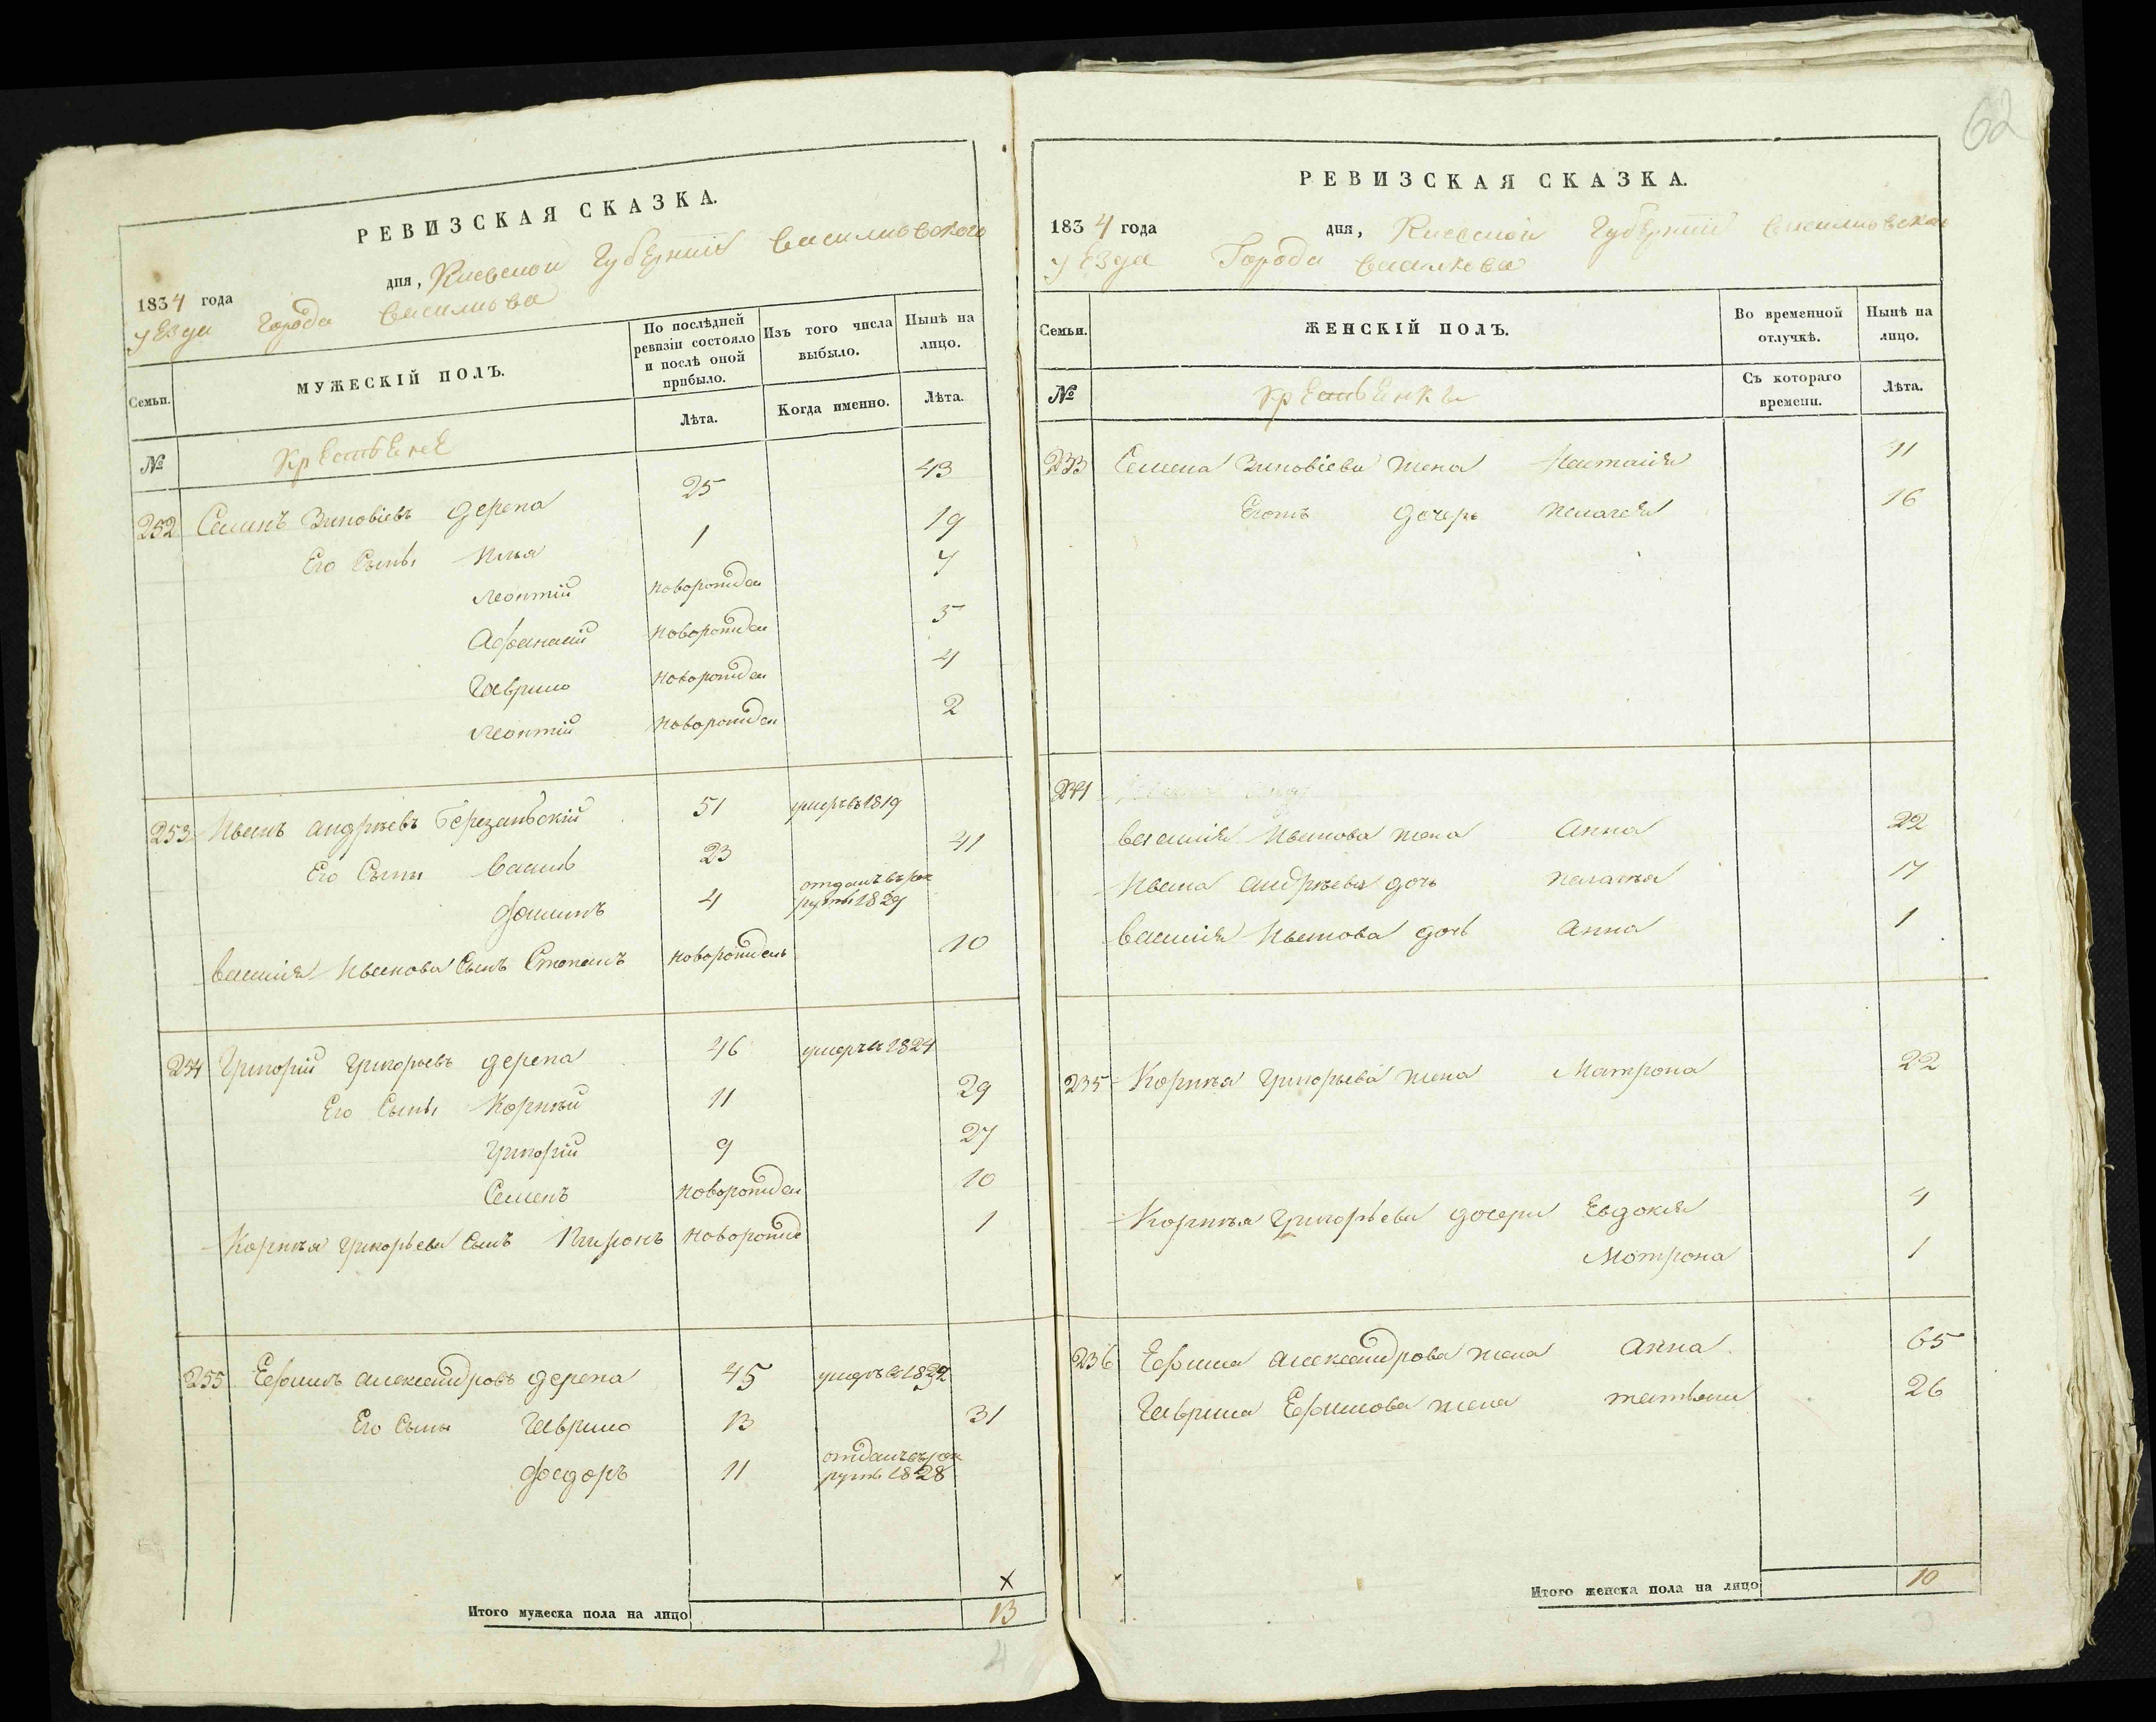 РЕВИЗСКАЯ СКАЗКА.
1834 года дня, Киевской Губерніи Василковского
уезда города Василкова
Семьи. МУЖЕСКІЙ ПОЛЪ. По послѣдней ревизіи состояло и послѣ оной прибыло. Изъ того числа выбыло. Нынѣ на лицо.
№ Крестьене Лѣта. Когда именно. Лѣта.
252 Семинъ Зиновіевъ Дерепа 25 43
Его Сыны Илья 1 19
Леонтій новорожден 7
Афанасій новорожден 5
Гаврило новорожден 4
Леонтій новорожден 2
253 Иванъ Андреевъ Березанскій 51 умеръ въ 1819
Его Сыны Василь 23 41
Фоминъ 4 отданъ въ рекруты 1829
Василія Иванова Сынъ Степанъ новорожденъ 10
254 Григорій Григорьевъ Дерепа 46 умеръ въ 1824
Его Сыны Корнѣй 11 29
Григорій 9 27
Семенъ новорожден 10
Корнѣя Григорьева Сынъ новорожде 1
255 Ефимъ Александровъ Дерепа 45 умеръ въ
Его Сыны Гаврило 13 31
Федоръ 11 отданъ въ рекруты 1828
х
Итого мужеска пола на лицо 13
4
62
РЕВИЗСКАЯ СКАЗКА.
1834 года дня, Киевской Губерніи Василковскаго
уезда Города Василкова
Семьи. ЖЕНСКІЙ ПОЛЪ. Во временной отлучкѣ. Нынѣ на лицо.
№ Крестьенки Съ котораго времени. Лѣта.
233 Семена Зиновіева жена Настасія 41
Егожъ дочерь Пелагея 16
Василія Иванова жена Анна 22
Ивана Андреева дочь Пелагѣя 17
Василія Иванова дочь Анна 1
235 Корнѣя Григорьева жена Матрона 22
Корнѣя Григорьева дочери Евдокія 4
Мотрона 1
236 Ефима Александрова жена Анна 65
Гаврила Ефимова жена татьяна 26
Итого женска пола на лицо 10
3